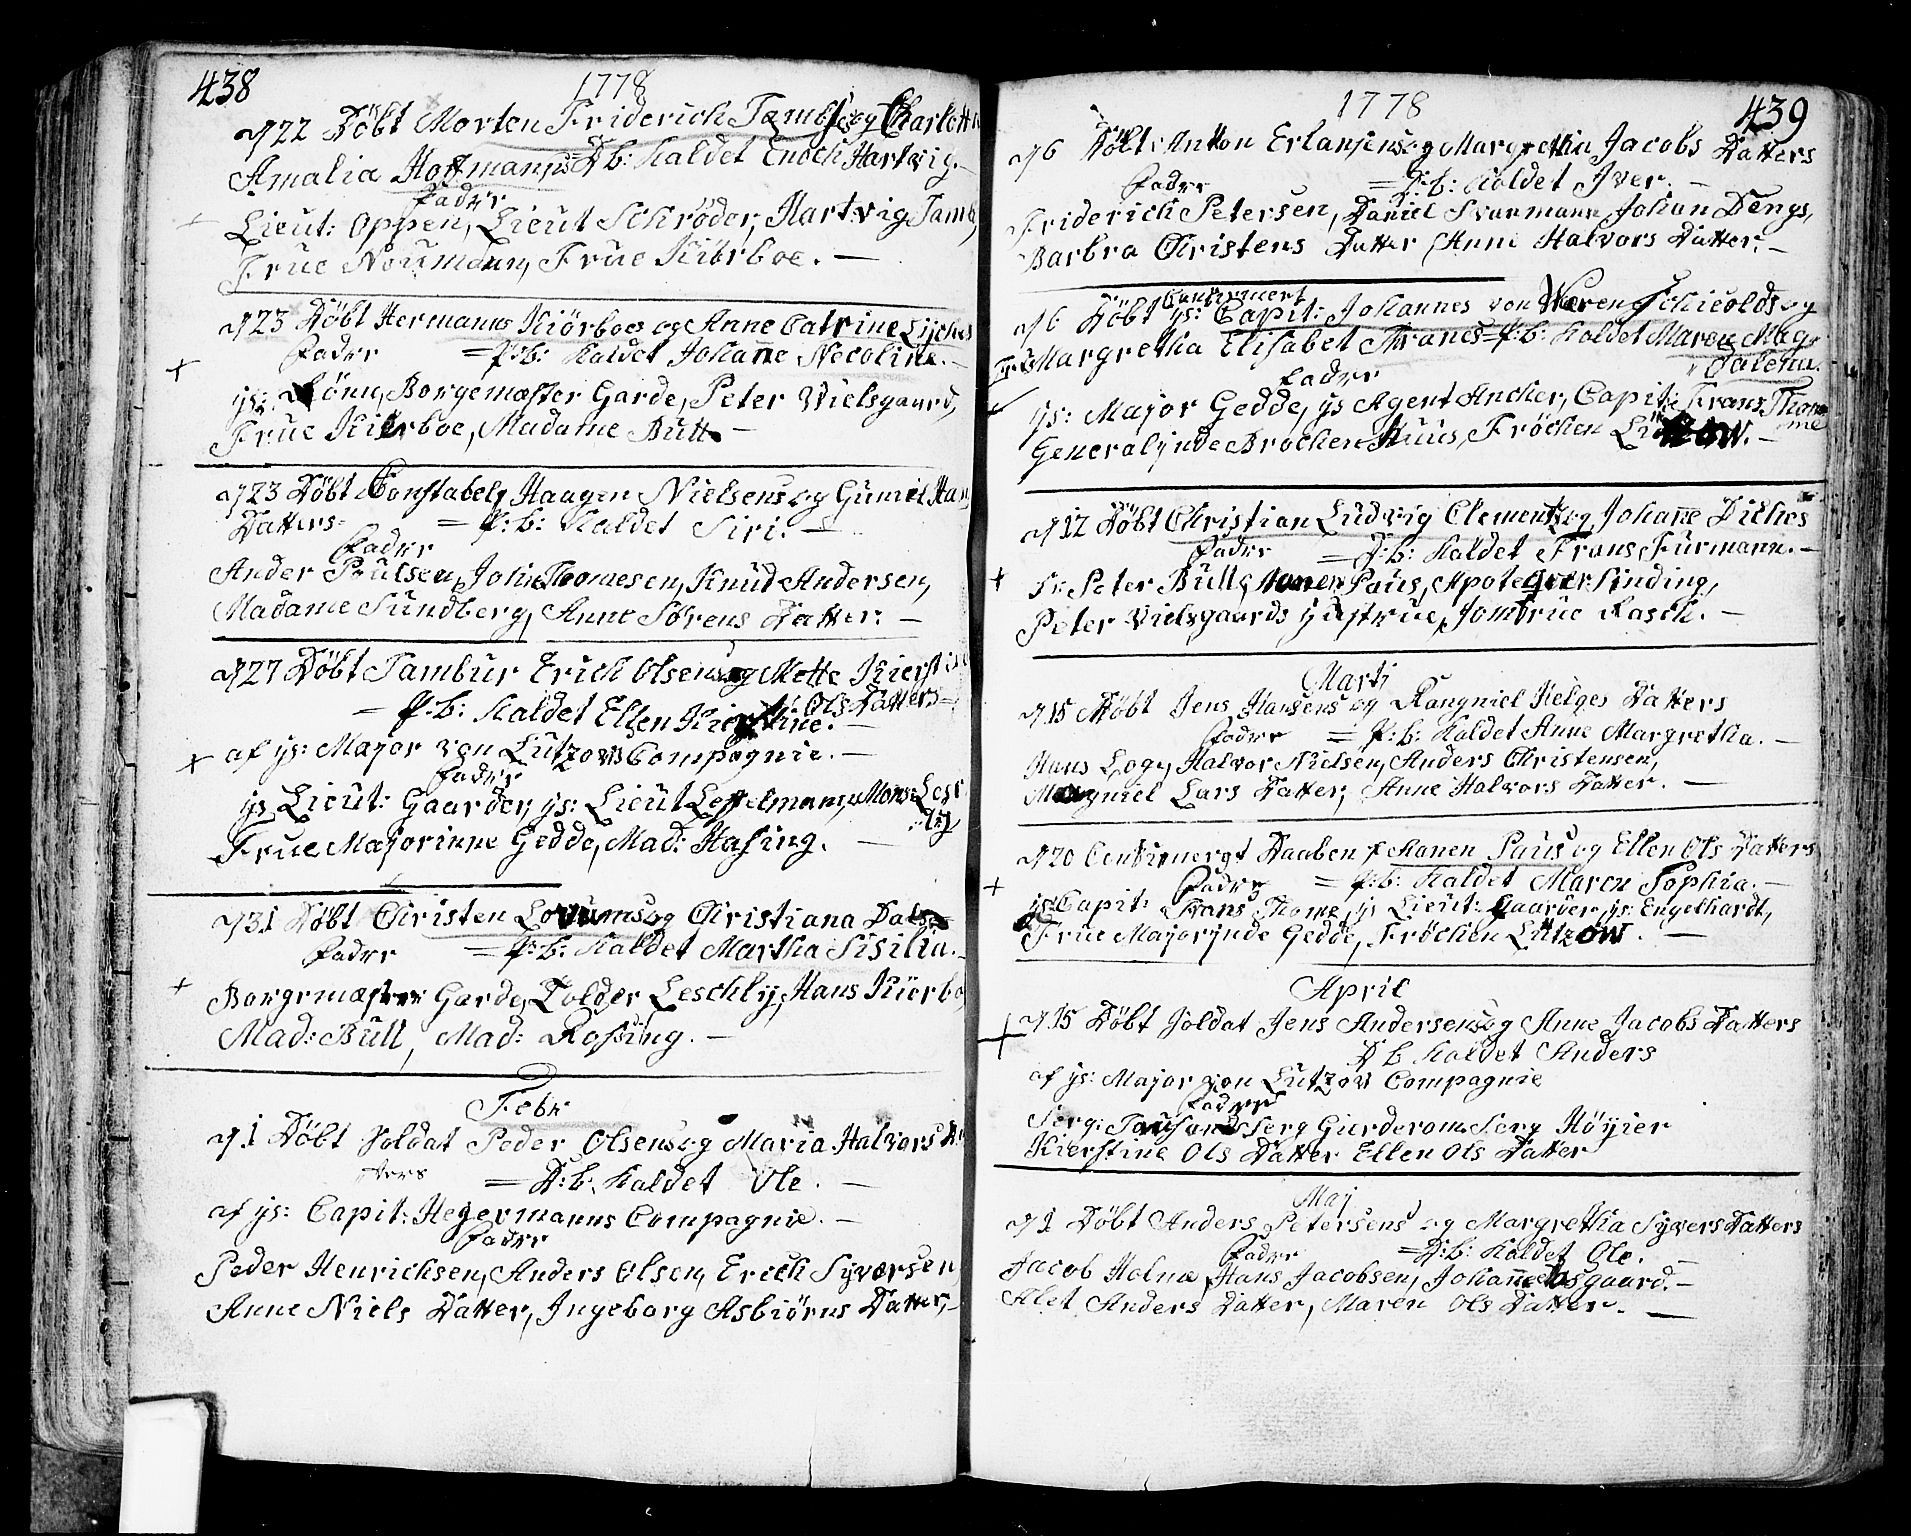 438
1778
d 22 Döbt Morten Friderich Tambs og Charlotta
Amalia Hoffmanns D b: Kaldet Enoch Hartvig. —
Fadre
Lieut: Oppen, Lieut Schrøder, Hartvig Tamb,
Frue Noumann, Frue Kiörboe. —
d 23 Döbt Hermanns Kiörboes og Anne Catrine Lyches
Fadre = P: b: Kaldet Johanne Necoline. —
Hs: Lönn, Borgemæster Garde, Peter Vielsgaard,
Frue Kiörboe, Madame Bull —
d 23 Döbt Constabels Haagen Nielsens og Guniel Han
Datters = P: b: Kaldet Siri. —
Fadre
Ander Poulsen, John Thomesen, Knud Andersen,
Madame Sundberg, Anne Sörens Datter. —
d 27 Döbt Tambur Erich Olsens og Mette Kierstine
Ols Datters =
— P: b: Kaldet Ellen Kierstine. —
af Hs: Major von Lützows Compagnie. —
Fadre
Hs Lieut: Gaarder, Hs: Lieut Leffelmann, Mons: Lesch
ly,
Frue Majorinne Gedde, Mad: Hasing. —
d 31 Döbt Christen Lorums og Christiana Dals
Fadre = P: b: Kaldet Martha Sisilia. —
Borgemæster Garde, Tolder Leschly, Hans Kiörbo
Mad: Bull, Mad: Rossing. —
Febr
d 1 Döbt Soldat Peder Olsens og Maria Halvors Da
tters = D: b: Kaldet Ole. —
af Hs: Capit: Hegermanns Compagnie. —
Fadre
Peder Henrichsen, Anders Olsen, Erich Syversen
Anne Niels Datter, Ingeborg Asbiörns Datter, —
1778
439
d 6 Döbt Anton Erlansens og Margretha Jacobs Datters
Fadre = P: b: Kaldet Iver. —
Friderich Petersen, Daniel Svanmann, Johan Dengs,
Barbra Christens Datter, Anne Halvors Datter. —
Confermert
d 6 Döbt Hs: Capit: Johannes von Weren Schiolds og
Margretha Elisabet Franes = P: b: Kaldet Maren Mag-
dalena.
Fadre
Hs: Major Gedde, Hs Agent Ancher, Capit: Frans Thom
me
Generalinde Brochenhuus, Fröchen Lützow. —
d 12 Döbt Christian Ludvig Clements og Johanne Diches
Fadre = D: b: Kaldet Frans Furmann. —
Sr: Peter Bull, Monen Paus, Apoteqver Sinding,
Peter Vielsgaards Hustrue, Jomfrue Rasch. —
Marti
d 15 Döbt Jens Hansens og Rangniel Helges Datters
Fadre = P: b: Kaldet Anne Margretha. —
Hans Loge, Halvor Nielsen, Anders Christensen,
Rangniel Lars Datter, Anne Halvors Datter. —
d 20 Confirmergt Daaben f Monen Paus og Ellen Ols Datters
Fadre = P: b: Kaldet Maren Sophia. —
Hs Capit: Frans Thome, Hs Lieut: Gaarder, Hs: Engelhardt,
Frue Majorinde Gedde, Fröchen Lützow. —
April
d 15 Döbt Soldat Jens Andersens og Anne Jacobs Datters
D b Kaldet Anders
af Hs: Major von Lutzow Compagnie
Fadre
Serg: Serg Gierderom Serg Höyier
Kierstine Ols Datter Ellen Ols Datter
Maj
d 1 Döbt Anders Petersens og Margretha Syvers Datters
Fadre = D: b: Kaldet Ole. —
Jacob Holm, Hans Jacobsen, Johanne Aasgaard. —
Alet Anders Datter, Maren Ols Datter. —